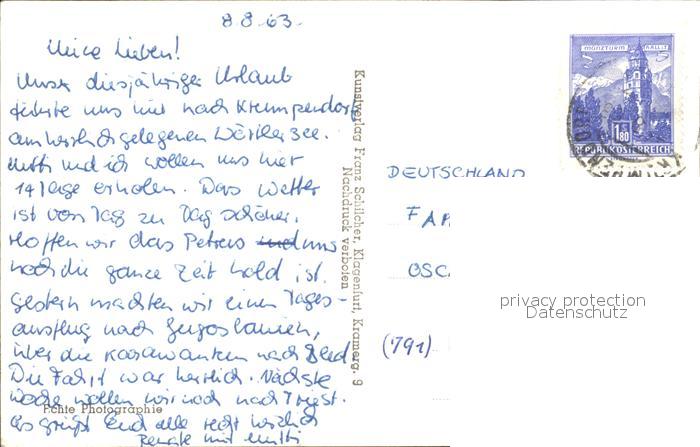 8.8.63.
Meine Lieben!
Unser diesjähriger Urlaub
führte uns hier nach Krumpendorf
am herrlich gelegenen Wörthersee.
Mutti und ich wollen uns hier
14 Tage erholen. Das Wetter
ist von Tag zu Tag schöner.
Hoffen wir das Petrus uns
noch die ganze Zeit hold ist.
Gestern machten wir einen Tages-
ausflug nach Jugoslawien,
über die Karawanken nach Bled.
Die Fahrt war herrlich. Nächste
Woche wollen wir noch nach Triest.
Es grüßt Euch alle recht herzlich
Renate und Mutti
Echte Photographie
Kunstverlag Franz Schilcher, Klagenfurt, Kramerg. 9
Nachdruck verboten
MÜNZTURM HALL i. T.
S 1.80
REPUBLIK ÖSTERREICH
DEUTSCHLAND
FA
OSC
(791)
privacy protection
Datenschutz